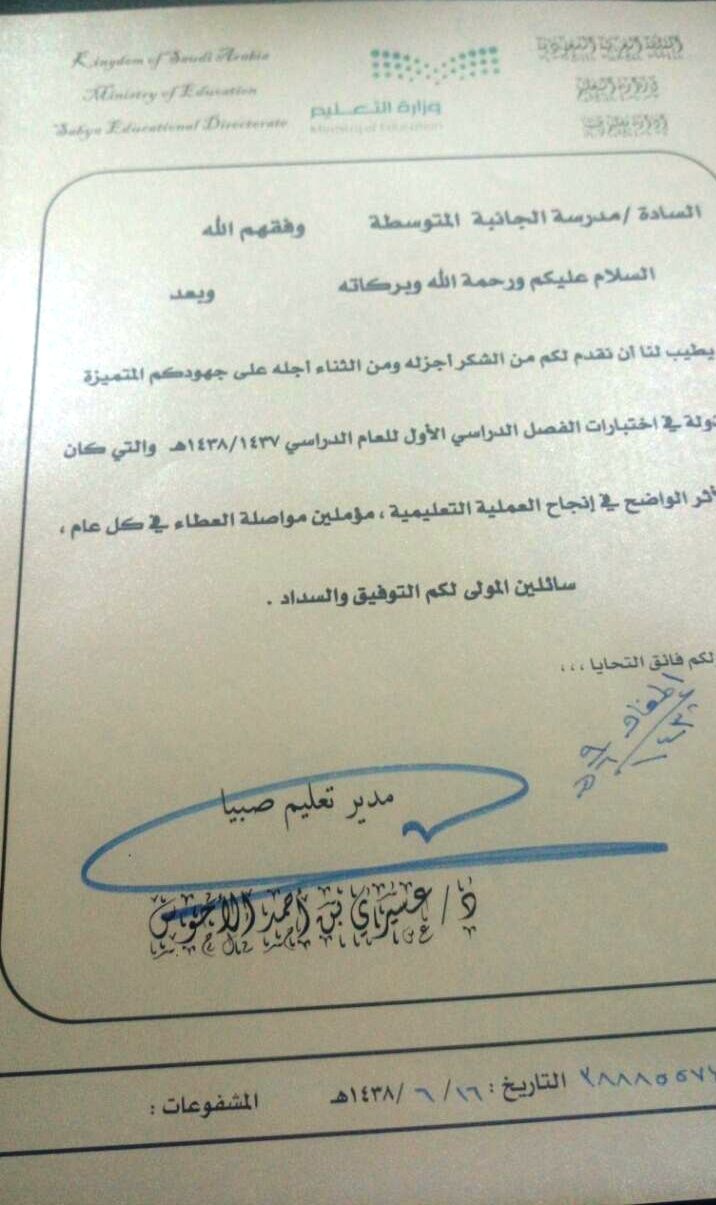 Kingdom of Saudi Arabia
Ministry of Education
Sabya Educational Directorate
وزارة التعليم
Ministry of Education
المملكة العربية السعودية
وزارة التعليم
إدارة تعليم صبيا
السادة / مدرسة الجانبة المتوسطة وفقهم الله
السلام عليكم ورحمة الله وبركاته وبعد
يطيب لنا أن نقدم لكم من الشكر أجزله ومن الثناء أجله على جهودكم المتميزة
ذولة في اختبارات الفصل الدراسي الأول للعام الدراسي ١٤٣٨/١٤٣٧هـ والتي كان
أثر الواضح في إنجاح العملية التعليمية ، مؤملين مواصلة العطاء في كل عام ،
سائلين المولى لكم التوفيق والسداد .
لكم فائق التحايا ...
مدير تعليم صبيا
د / عسيري بن أحمد الأحوس
التاريخ : ١٦ / ٦ /١٤٣٨هـ المشفوعات :